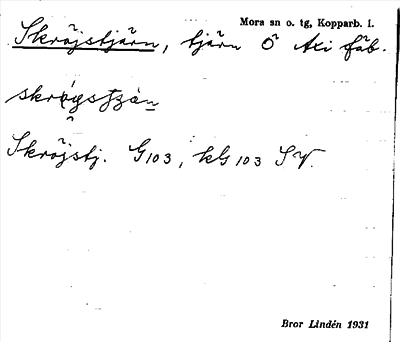 Mora sn o. tg, Kopparb. l.
Skröjstjärn, tjärn Ö Axi fäb.
Skröjstj. G103, kG 103 SV.
Bror Lindén 1931